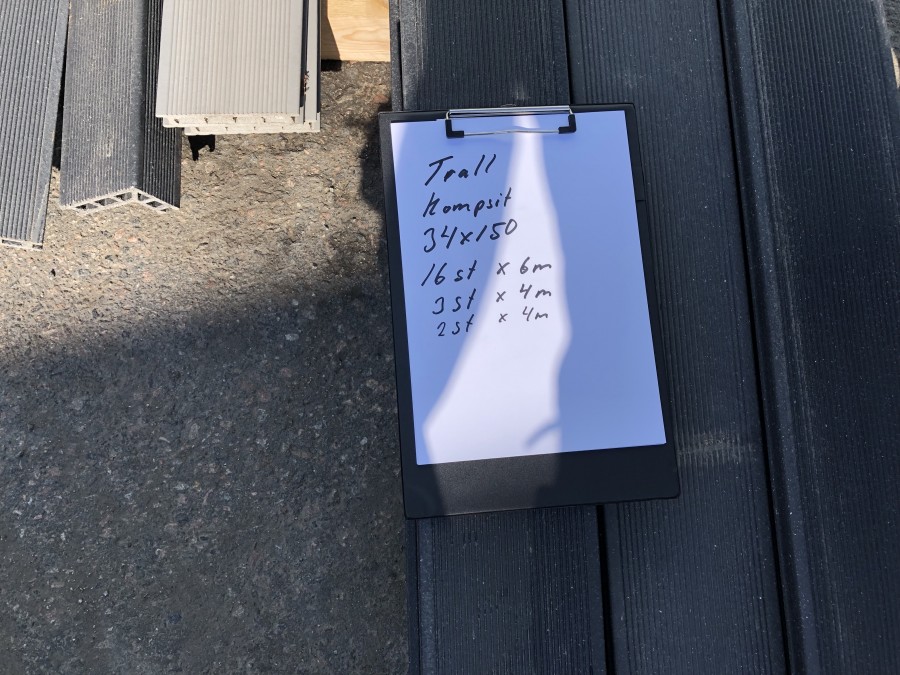 Trall
Kompsit
34x150
16 st x 6m
3 st x 4m
2 st x 4m